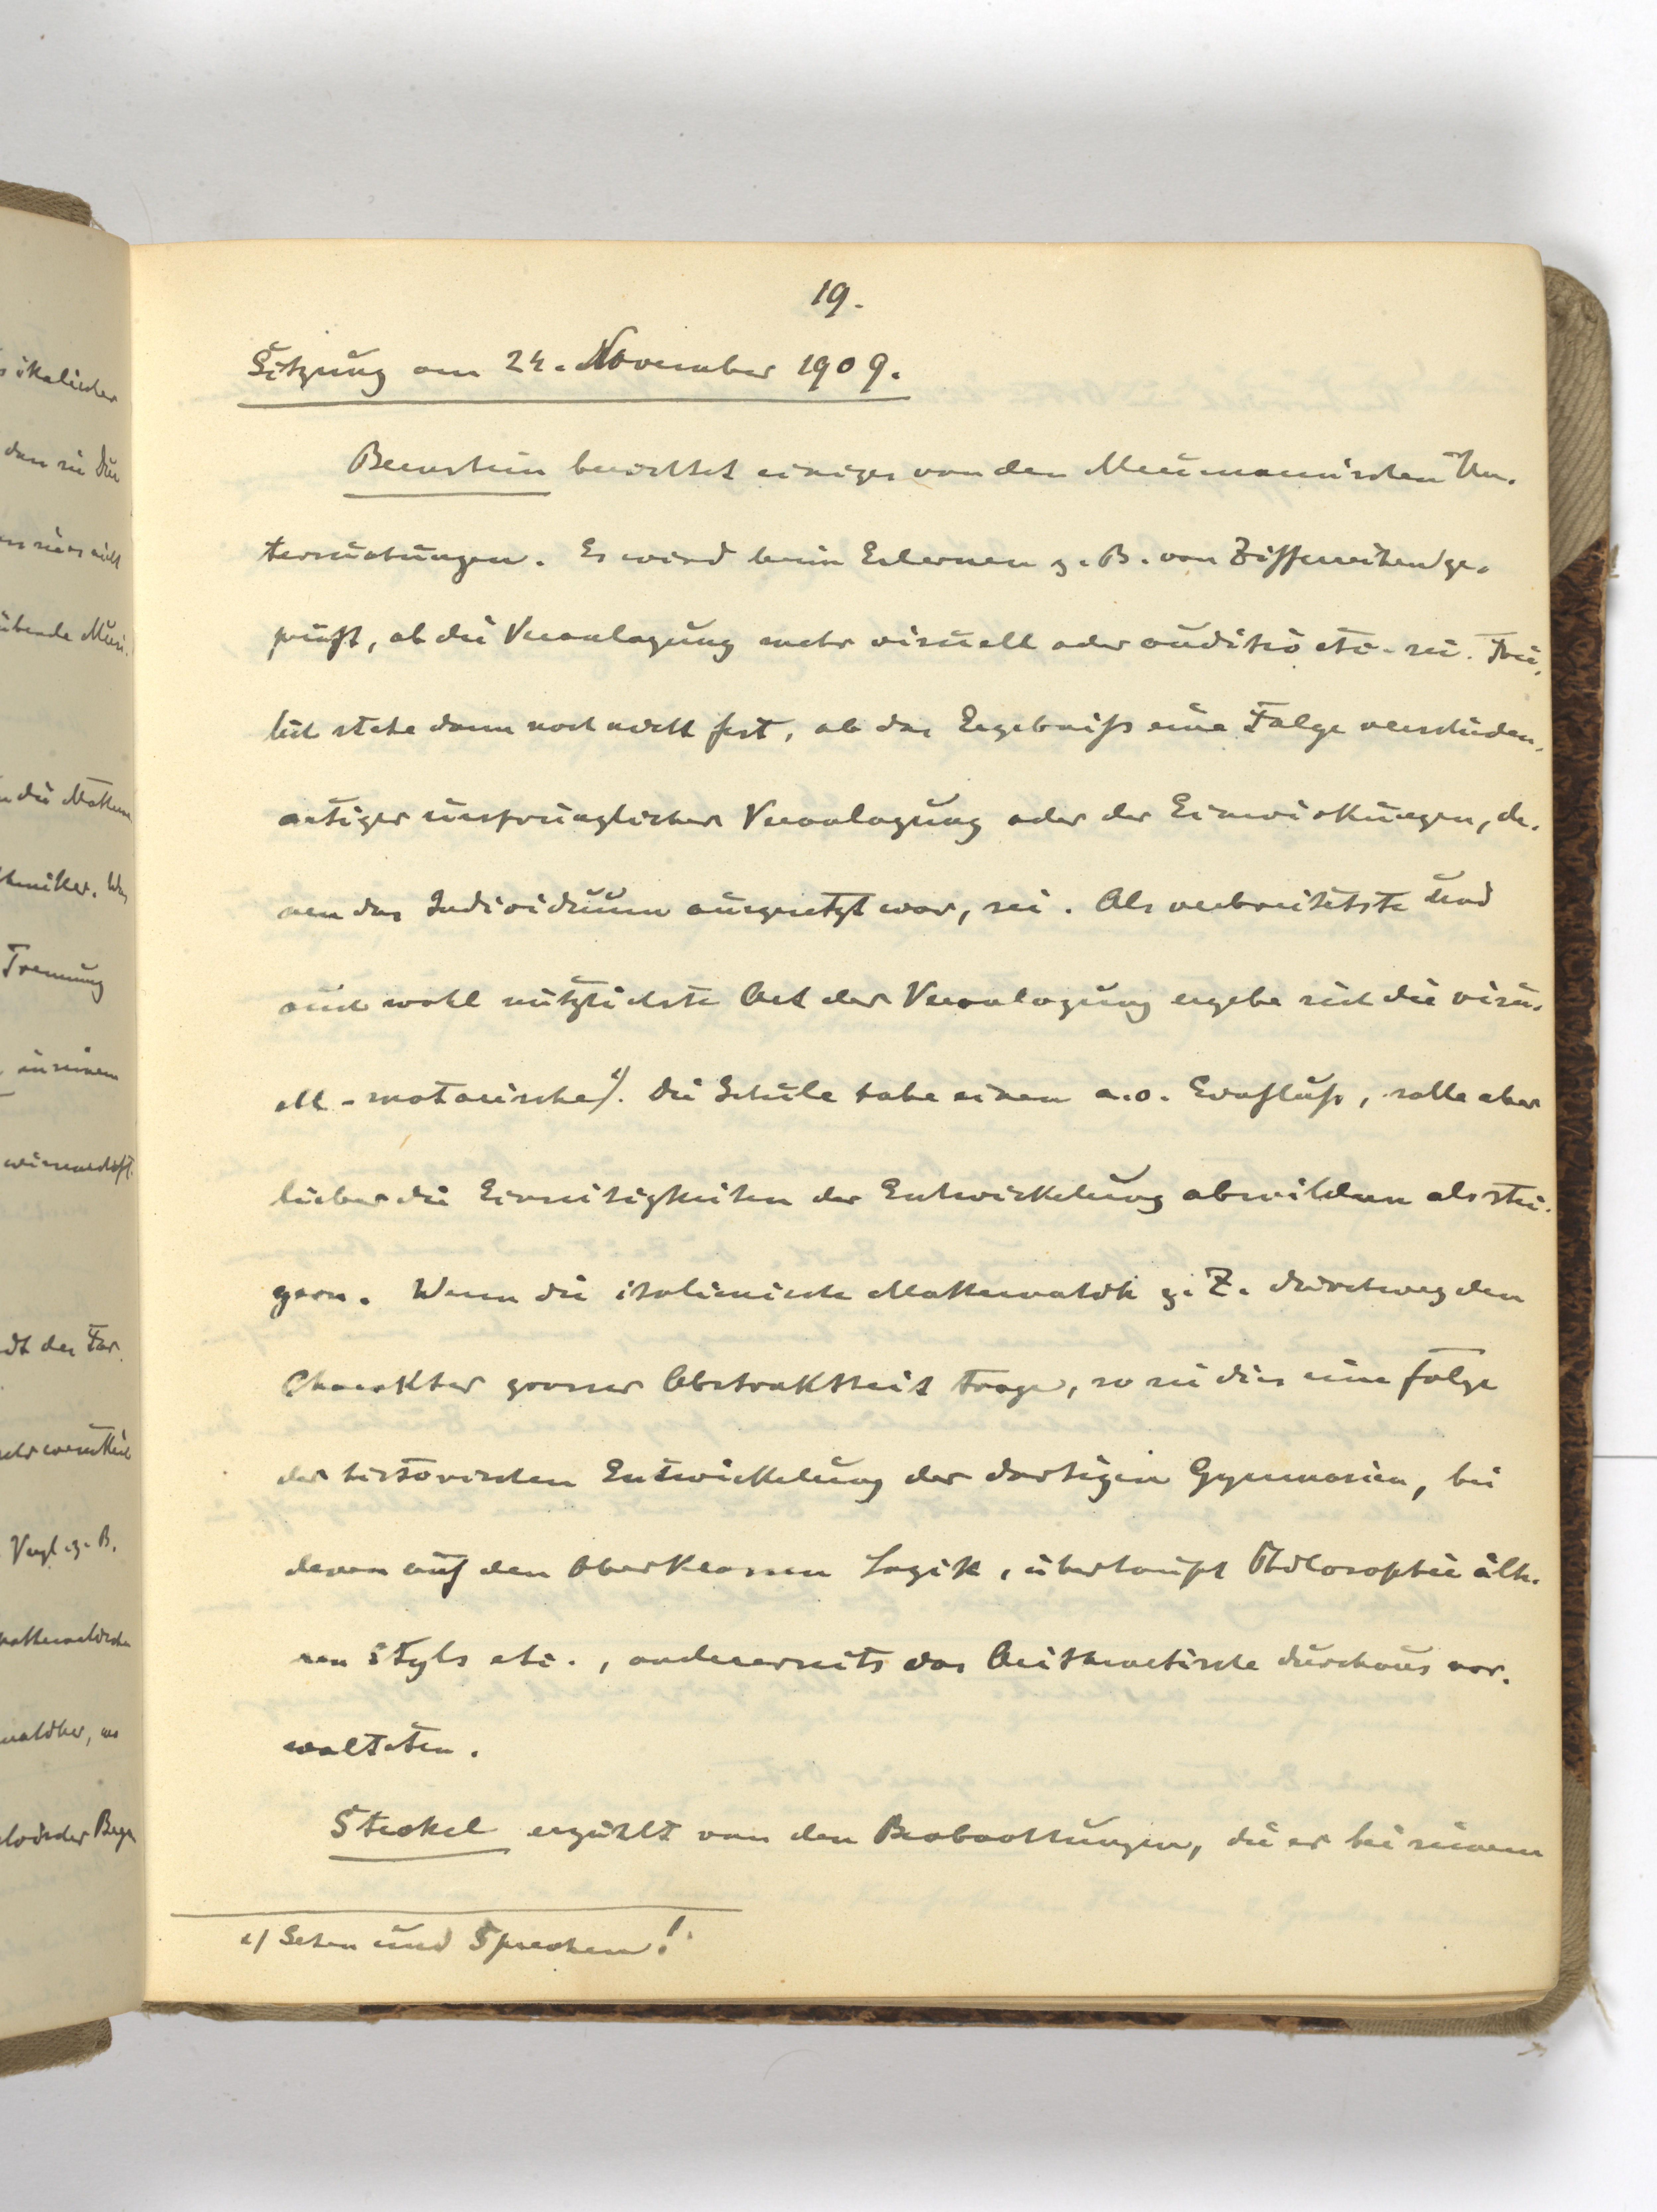 19.
Sitzung am 24. November 1909.
Bernstein berichtet einiges von den Meumannischen Un-
tersuchungen. Es wird beim Erlernen z. B. von Ziffernreihen ge-
prüft, ob die Veranlagung mehr visuell oder auditiv etc. sei. Frei-
lich stehe dann noch nicht fest, ob das Ergebniß eine Folge verschieden-
artiger ursprünglicher Veranlagung oder der Einwirkungen, de-
nen das Individuum ausgesetzt war, sei. Als verbreitetste und
auch wohl nützlichste Art der Veranlagung ergebe sich die visu-
ell-motorische 1). Die Schule habe einen a.o. Einfluß, solle aber
lieber die Einseitigkeiten der Entwickelung abmildern als stei-
gern. Wenn die italienische Mathematik z. Z. durchweg den
Charakter grosser Abstraktheit trage, so sei dies eine Folge
der historischen Entwickelung der dortigen Gymnasien, bei
denen auf den Oberklassen Logik, überhaupt Philosophie älte-
ren Styls etc., andererseits das Arithmetische durchaus vor-
walteten.
Steckel erzählt von den Beobachtungen, die er bei seinem
1) Sehen und Sprechen!
sikalischer
dass sie die
übende Musi-
die Mathem
Trennung
in seinem
wissenschaft-
Vergl. z. B.
mathematischen